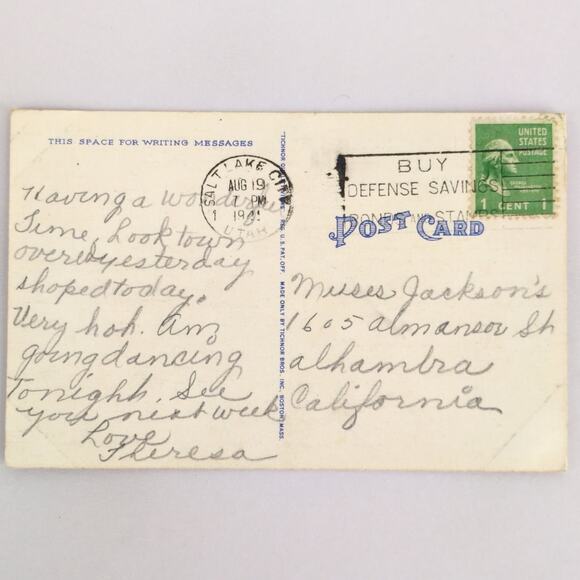 THIS SPACE FOR WRITING MESSAGES
Having a wonderful
Time. Look town
over yesterday
shoped today.
Very hoh. Am
going dancing
Tonighh. See
you next week
Love
Theresa
SALT LAKE CITY
AUG 19
1 PM
1941
UTAH
BUY
DEFENSE SAVINGS
BONDS AND STAMPS
UNITED
STATES
POSTAGE
1 CENT 1
POST CARD
REG. U.S. PAT. OFF. MADE ONLY BY TICHNOR BROS. INC. BOSTON MASS.
Muses Jackson's
1605 almansor Sh
alhambra
California